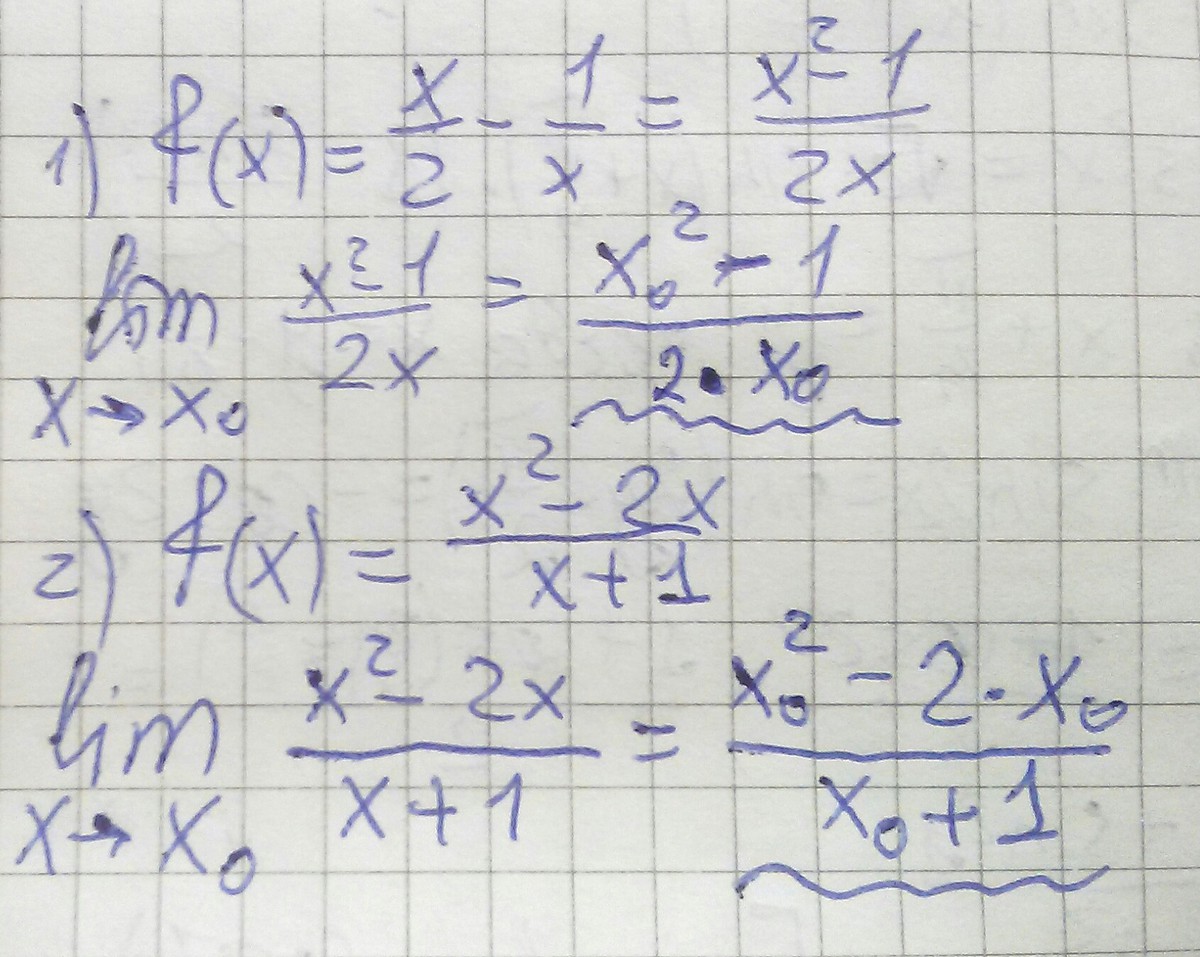 1) f(x) = x/2 - 1/x = (x² - 1)/(2x)
lim x→x₀ (x² - 1)/(2x) = (x₀² - 1)/(2 · x₀)
2) f(x) = (x² - 2x)/(x + 1)
lim x→x₀ (x² - 2x)/(x + 1) = (x₀² - 2 · x₀)/(x₀ + 1)